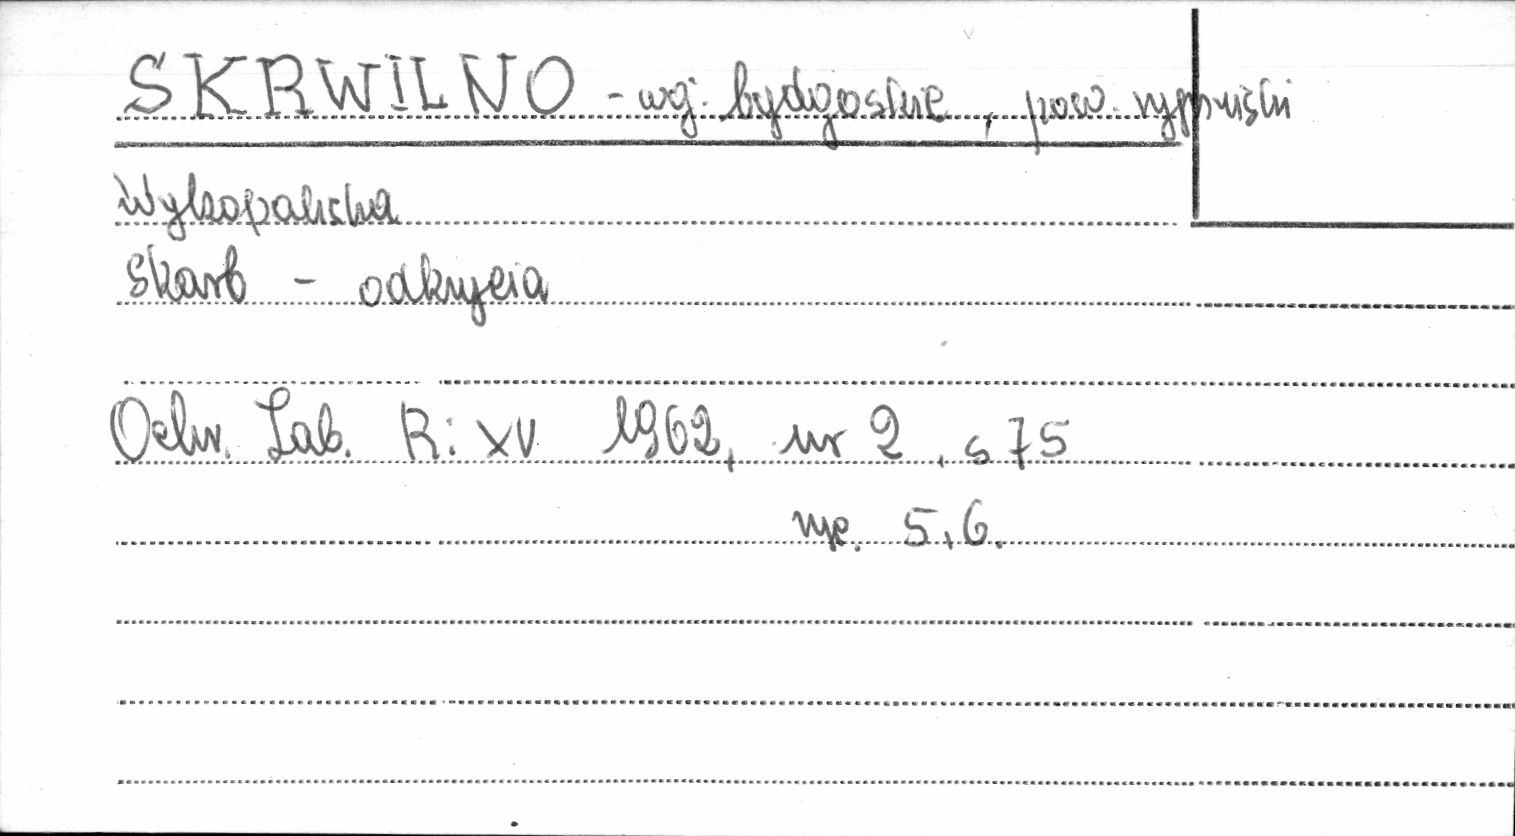 SKRWILNO - woj. bydgoskie, pow. rypiński
Wykopaliska
Skarb - odkrycia
Ochr. Zab. R: XV 1962, nr 2, s 75
ryc. 5,6.